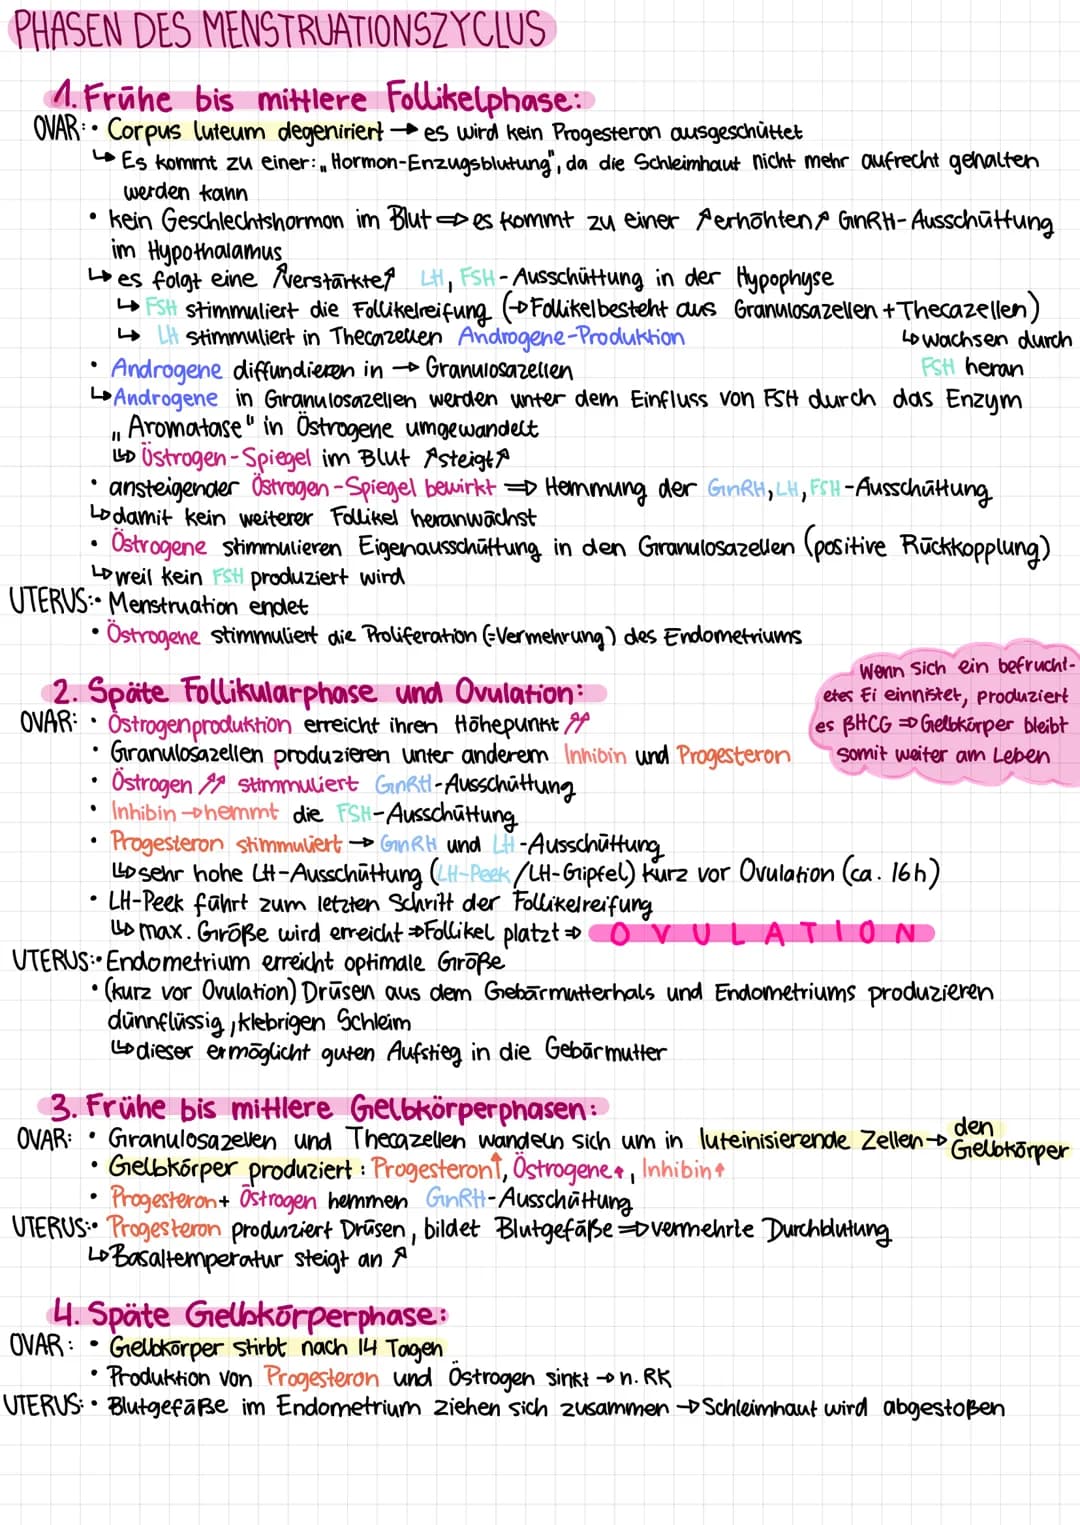 PHASEN DES MENSTRUATIONSZYCLUS
1. Frühe bis mittlere Follikelphase:
OVAR: • Corpus luteum degeneriert → es wird kein Progesteron ausgeschüttet
↳ Es kommt zu einer: „Hormon-Enzugsblutung", da die Schleimhaut nicht mehr aufrecht gehalten
werden kann
• kein Geschlechtshormon im Blut ⇒ es kommt zu einer ↗erhöhten↗ GnRH-Ausschüttung
im Hypothalamus
↳ es folgt eine ↗verstärkte↗ LH, FSH-Ausschüttung in der Hypophyse
↳ FSH stimmuliert die Follikelreifung (→ Follikel besteht aus Granulosazellen + Thecazellen)
↳ LH stimmuliert in Thecazellen Androgene-Produktion ↳ wachsen durch
FSH heran
• Androgene diffundieren in → Granulosazellen
↳ Androgene in Granulosazellen werden unter dem Einfluss von FSH durch das Enzym
„Aromatase" in Östrogene umgewandelt
↳ Östrogen-Spiegel im Blut ↗steigt↗
• ansteigender Östrogen-Spiegel bewirkt ⇒ Hemmung der GnRH, LH, FSH-Ausschüttung
↳ damit kein weiterer Follikel heranwächst
• Östrogene stimmulieren Eigenausschüttung in den Granulosazellen (positive Rückkopplung)
↳ weil kein FSH produziert wird
UTERUS: • Menstruation endet
• Östrogene stimmuliert die Proliferation (=Vermehrung) des Endometriums
Wenn sich ein befrucht-
etes Ei einnistet, produziert
es βHCG ⇒ Gelbkörper bleibt
somit weiter am Leben
2. Späte Follikularphase und Ovulation:
OVAR: • Östrogenproduktion erreicht ihren Höhepunkt ↗↗
• Granulosazellen produzieren unter anderem Inhibin und Progesteron
• Östrogen ↗↗ stimmuliert GnRH-Ausschüttung
• Inhibin → hemmt die FSH-Ausschüttung
• Progesteron stimmuliert → GnRH und LH-Ausschüttung
↳ sehr hohe LH-Ausschüttung (LH-Peek/LH-Gipfel) kurz vor Ovulation (ca. 16h)
• LH-Peek führt zum letzten Schritt der Follikelreifung
↳ max. Größe wird erreicht ⇒ Follikel platzt ⇒ OVULATION
UTERUS: • Endometrium erreicht optimale Größe
• (kurz vor Ovulation) Drüsen aus dem Gebärmutterhals und Endometriums produzieren
dünnflüssig, klebrigen Schleim
↳ dieser ermöglicht guten Aufstieg in die Gebärmutter
3. Frühe bis mittlere Gelbkörperphasen:
OVAR: • Granulosazellen und Thecazellen wandeln sich um in luteinisierende Zellen → den Gelbkörper
• Gelbkörper produziert: Progesteron↑, Östrogene↑, Inhibin↑
• Progesteron + Östrogen hemmen GnRH-Ausschüttung
UTERUS: • Progesteron produziert Drüsen, bildet Blutgefäße ⇒ vermehrte Durchblutung
↳ Basaltemperatur steigt an ↗
4. Späte Gelbkörperphase:
OVAR: • Gelbkörper stirbt nach 14 Tagen
• Produktion von Progesteron und Östrogen sinkt → n. RK
UTERUS: • Blutgefäße im Endometrium ziehen sich zusammen → Schleimhaut wird abgestoßen